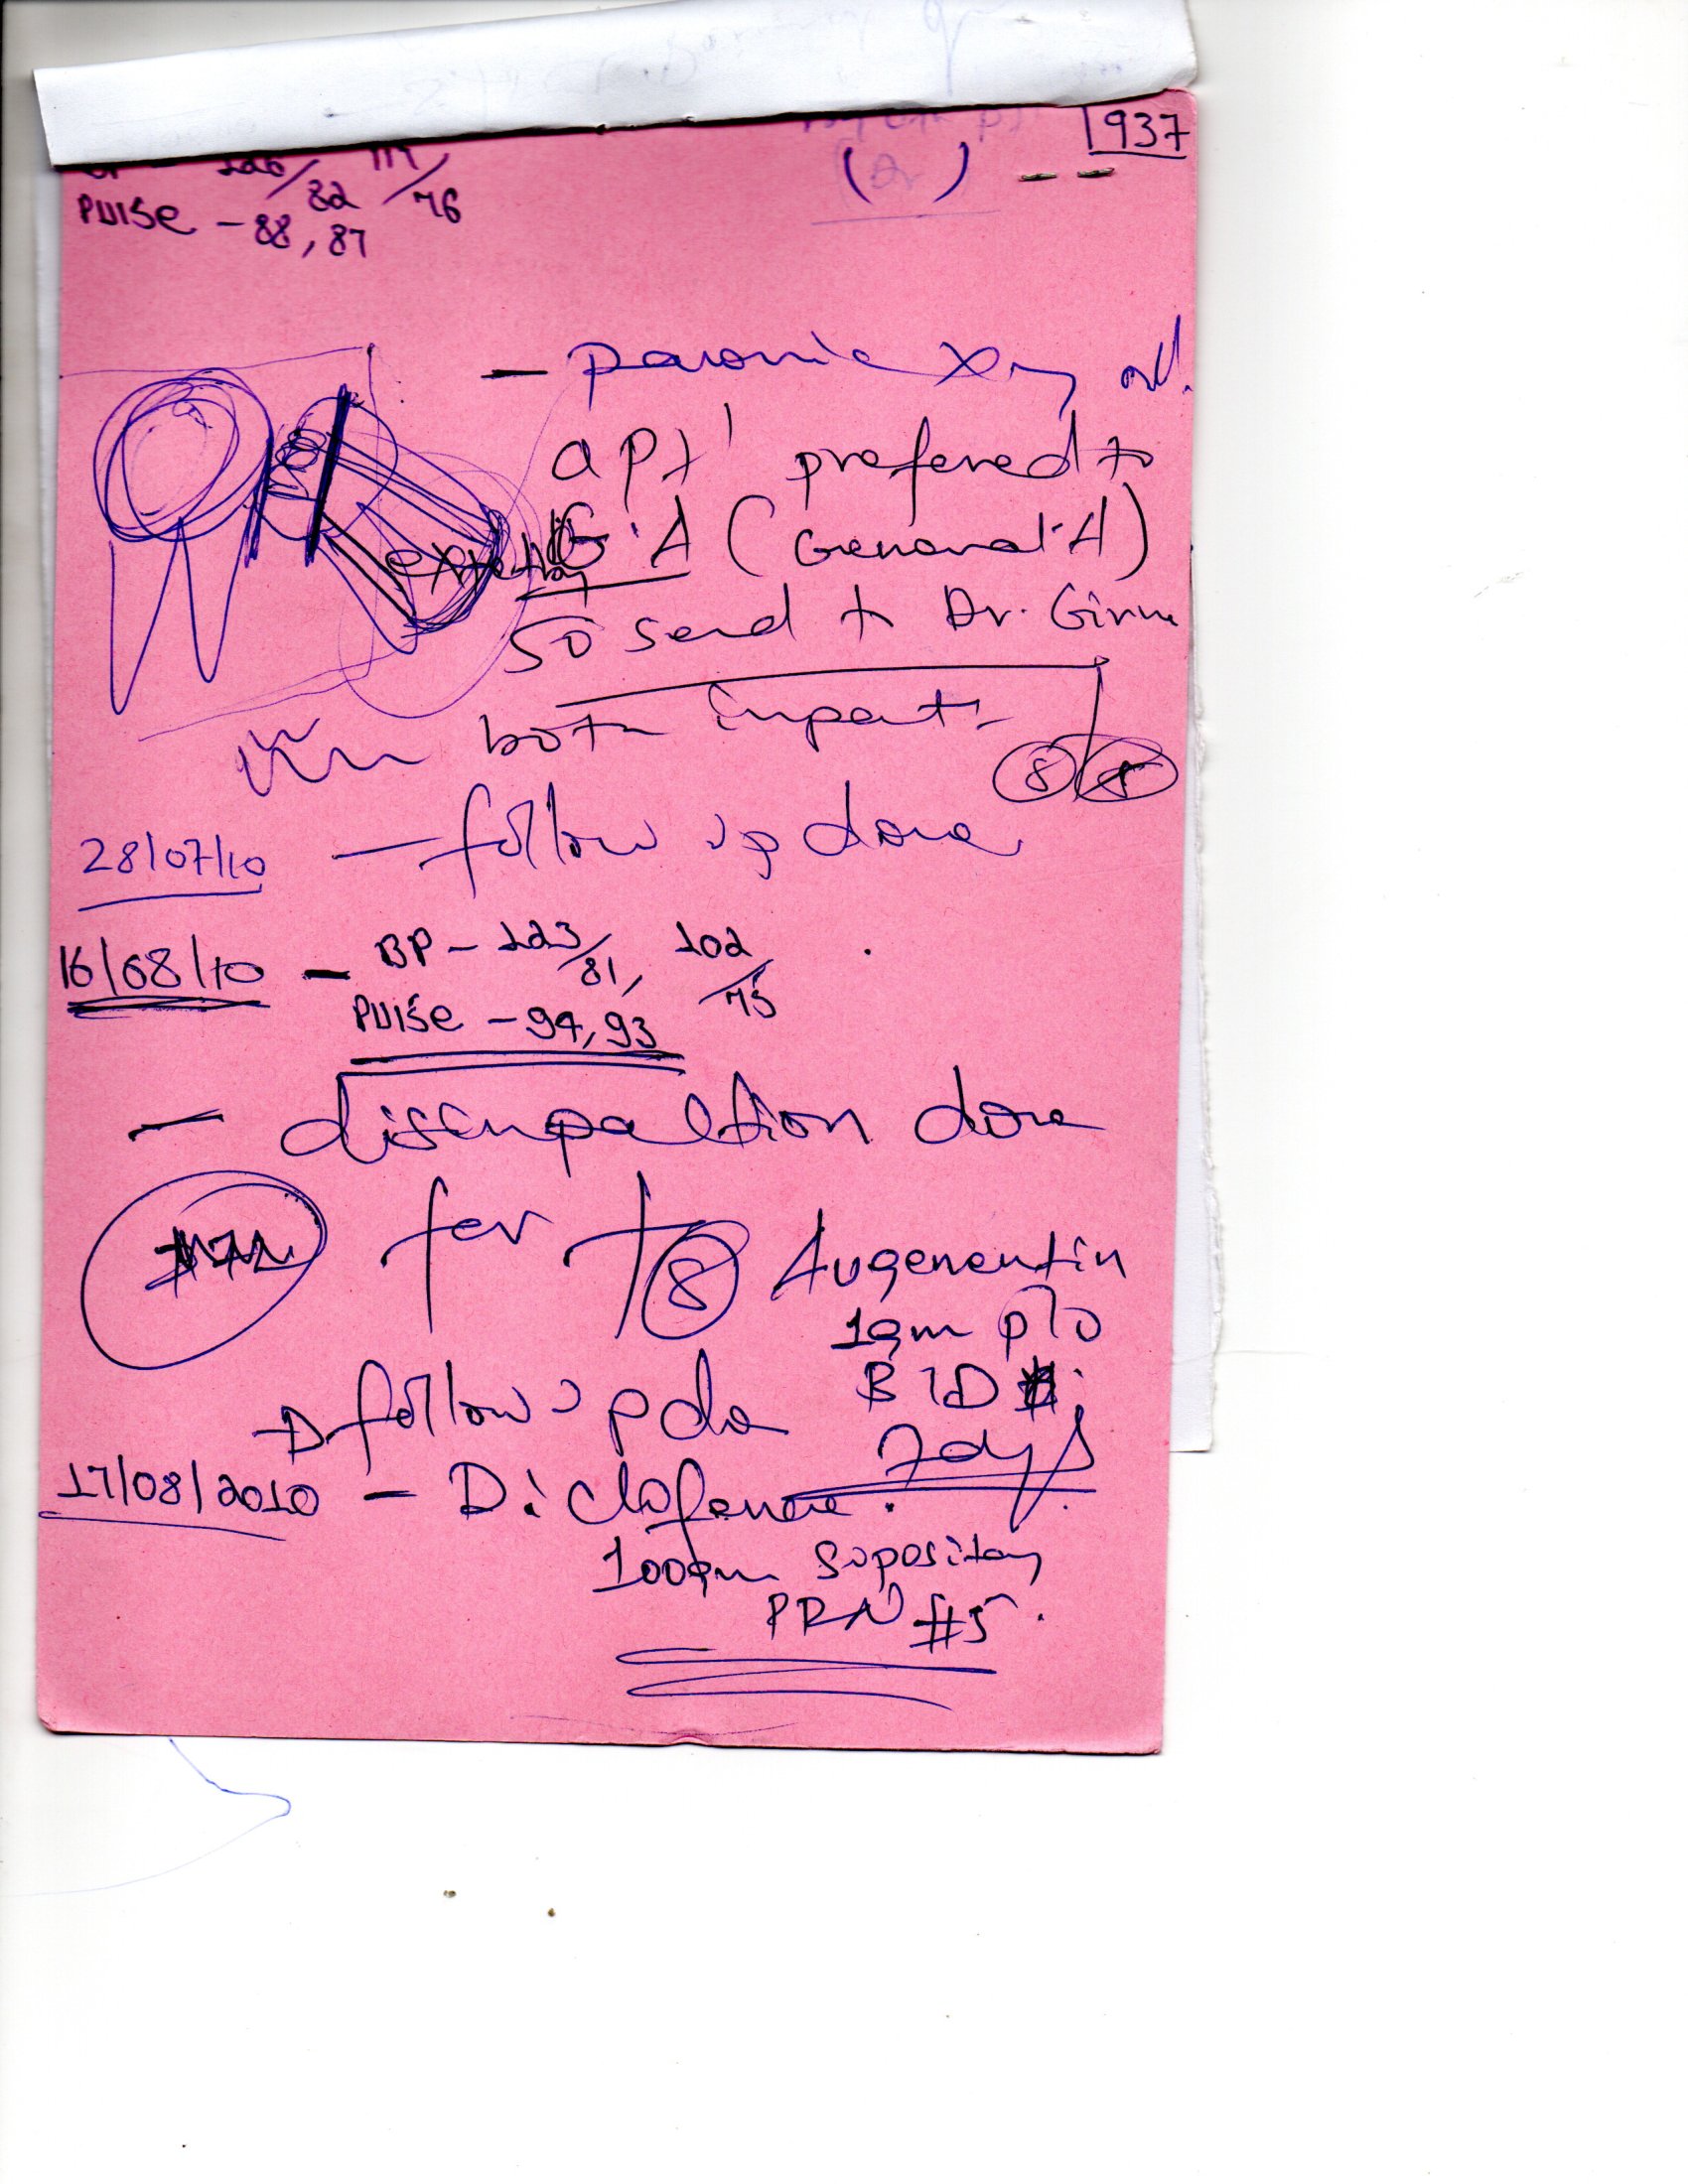 1937
126/82 114/76
PUlSe - 88, 87
(Dr )
- panoramic Xray
a pt preferred to
G.A (General.A)
so send to Dr. Girma
both impact
8 8
28/07/10 - follow up done
16/08/10 - BP - 123/81, 102/75
PUlSe - 94, 93
- disimpaction done
for 8 Augenentin
1gm p/o
BID
7dys
follow up
17/08/2010 - Diclofenac.
100gm Sopository
PRN #5.